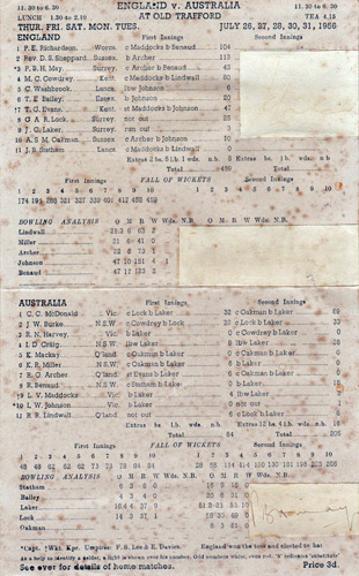 11.30 to 6.30 ENGLAND v. AUSTRALIA 11.30 to 6.30
LUNCH 1.30 to 2.10 AT OLD TRAFFORD TEA 4.15
THUR. FRI. SAT. MON. TUES. JULY 26, 27, 28, 30, 31, 1956
ENGLAND First Innings Second Innings
1 P. E. Richardson. Worcs. c Maddocks b Benaud 104
2 Rev. D. S. Sheppard. Sussex. b Archer 113
*3 P. B. H. May. Surrey. c Archer b Benaud 43
4 M. C. Cowdrey. Kent. c Maddocks b Lindwall 80
5 C. Washbrook. Lancs. lbw Johnson 6
6 T. E. Bailey. Essex. b Johnson 20
†7 T. G. Evans. Kent. st Maddocks b Johnson 47
8 G. A. R. Lock. Surrey. not out 25
9 J. C. Laker. Surrey. run out 3
10 A. S. M. Oakman. Sussex. c Archer b Johnson 10
11 J. B. Statham. Lancs. c Maddocks b Lindwall 0
Total 459 Total
First Innings FALL OF WICKETS Second Innings
1 2 3 4 5 6 7 8 9 10 1 2 3 4 5 6 7 8 9 10
174 195 288 321 327 339 401 417 458 459
BOWLING ANALYSIS O M R W Wds. N.B. O M R W Wds. N.B.
Lindwall
Miller 21 6 41 0
Archer 22 6 73 1
Johnson 47 10 151 4 1
Benaud 47 17 123 2
AUSTRALIA First Innings Second Innings
1 C. C. McDonald Vic. c Lock b Laker 32 c Oakman b Laker 89
2 J. W. Burke. N.S.W. c Cowdrey b Lock 22 c Lock b Laker 33
3 R. N. Harvey. Vic. b Laker 0 c Cowdrey b Laker 0
4 I. D. Craig. N.S.W. lbw Laker 8 lbw Laker 38
5 K. Mackay Q'land c Oakman b Laker 0 c Oakman b Laker 0
6 K. R. Miller N.S.W. c Oakman b Laker 6 b Laker 0
7 R. G. Archer Q'land st Evans b Laker 6 c Oakman b Laker 0
8 R. Benaud N.S.W. c Statham b Laker 0 b Laker 18
†9 L. V. Maddocks Vic. b Laker 4 lbw Laker
*10 I. W. Johnson Vic. b Laker 0 not out 1
11 R. R. Lindwall Q'land not out 6 c Lock b Laker
Total 84 Total 205
First Innings FALL OF WICKETS Second Innings
1 2 3 4 5 6 7 8 9 10 1 2 3 4 5 6 7 8 9 10
48 48 62 62 62 73 73 78 84 84 28 55 114 124 130 130 181 198 203 205
BOWLING ANALYSIS O M R W Wds. N.B. O M R W Wds. N.B.
Statham 6 3 6 0
Bailey 4 3 4 0
Laker 16.4 4 37 9
Lock 14 3 37 1
Oakman
*Capt. †Wkt. Kpr. Umpires: F. S. Lee & E. Davies. England won the toss and elected to bat
See over for details of home matches. Price 3d.